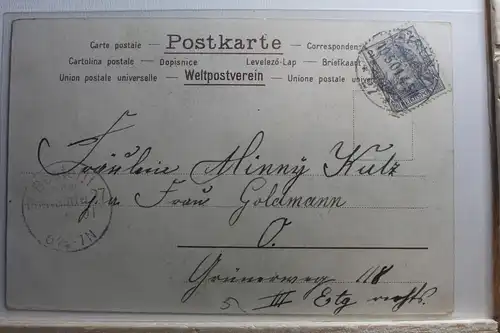 Carte postale — Postkarte — Correspondenz
Cartolina postale — Dopisnice Levelező-Lap — Briefkaart
Union postale universelle — Weltpostverein — Unione postale
Fräulein Minny Kulz
p. a. Frau Goldmann
O.
Grünerweg 118
III Etg rechts.
5